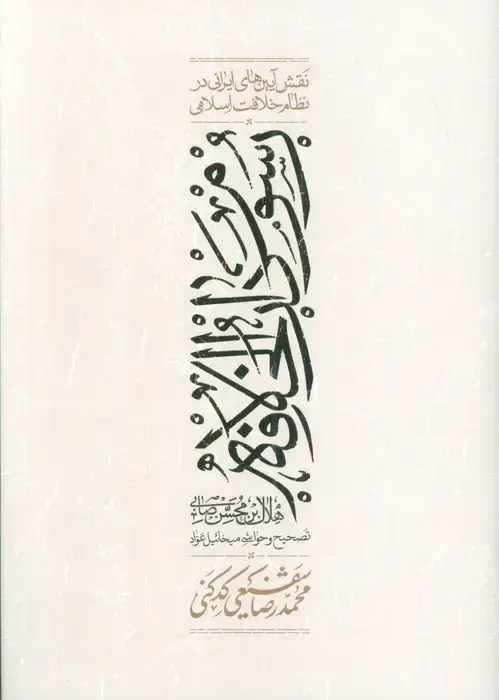 نقش آیین‌های ایرانی در
نظام خلافت اسلامی
رسوم دارالخلافه
هلال بن محسن صابی
تصحیح و حواشی میخائیل عواد
محمدرضا شفیعی کدکنی